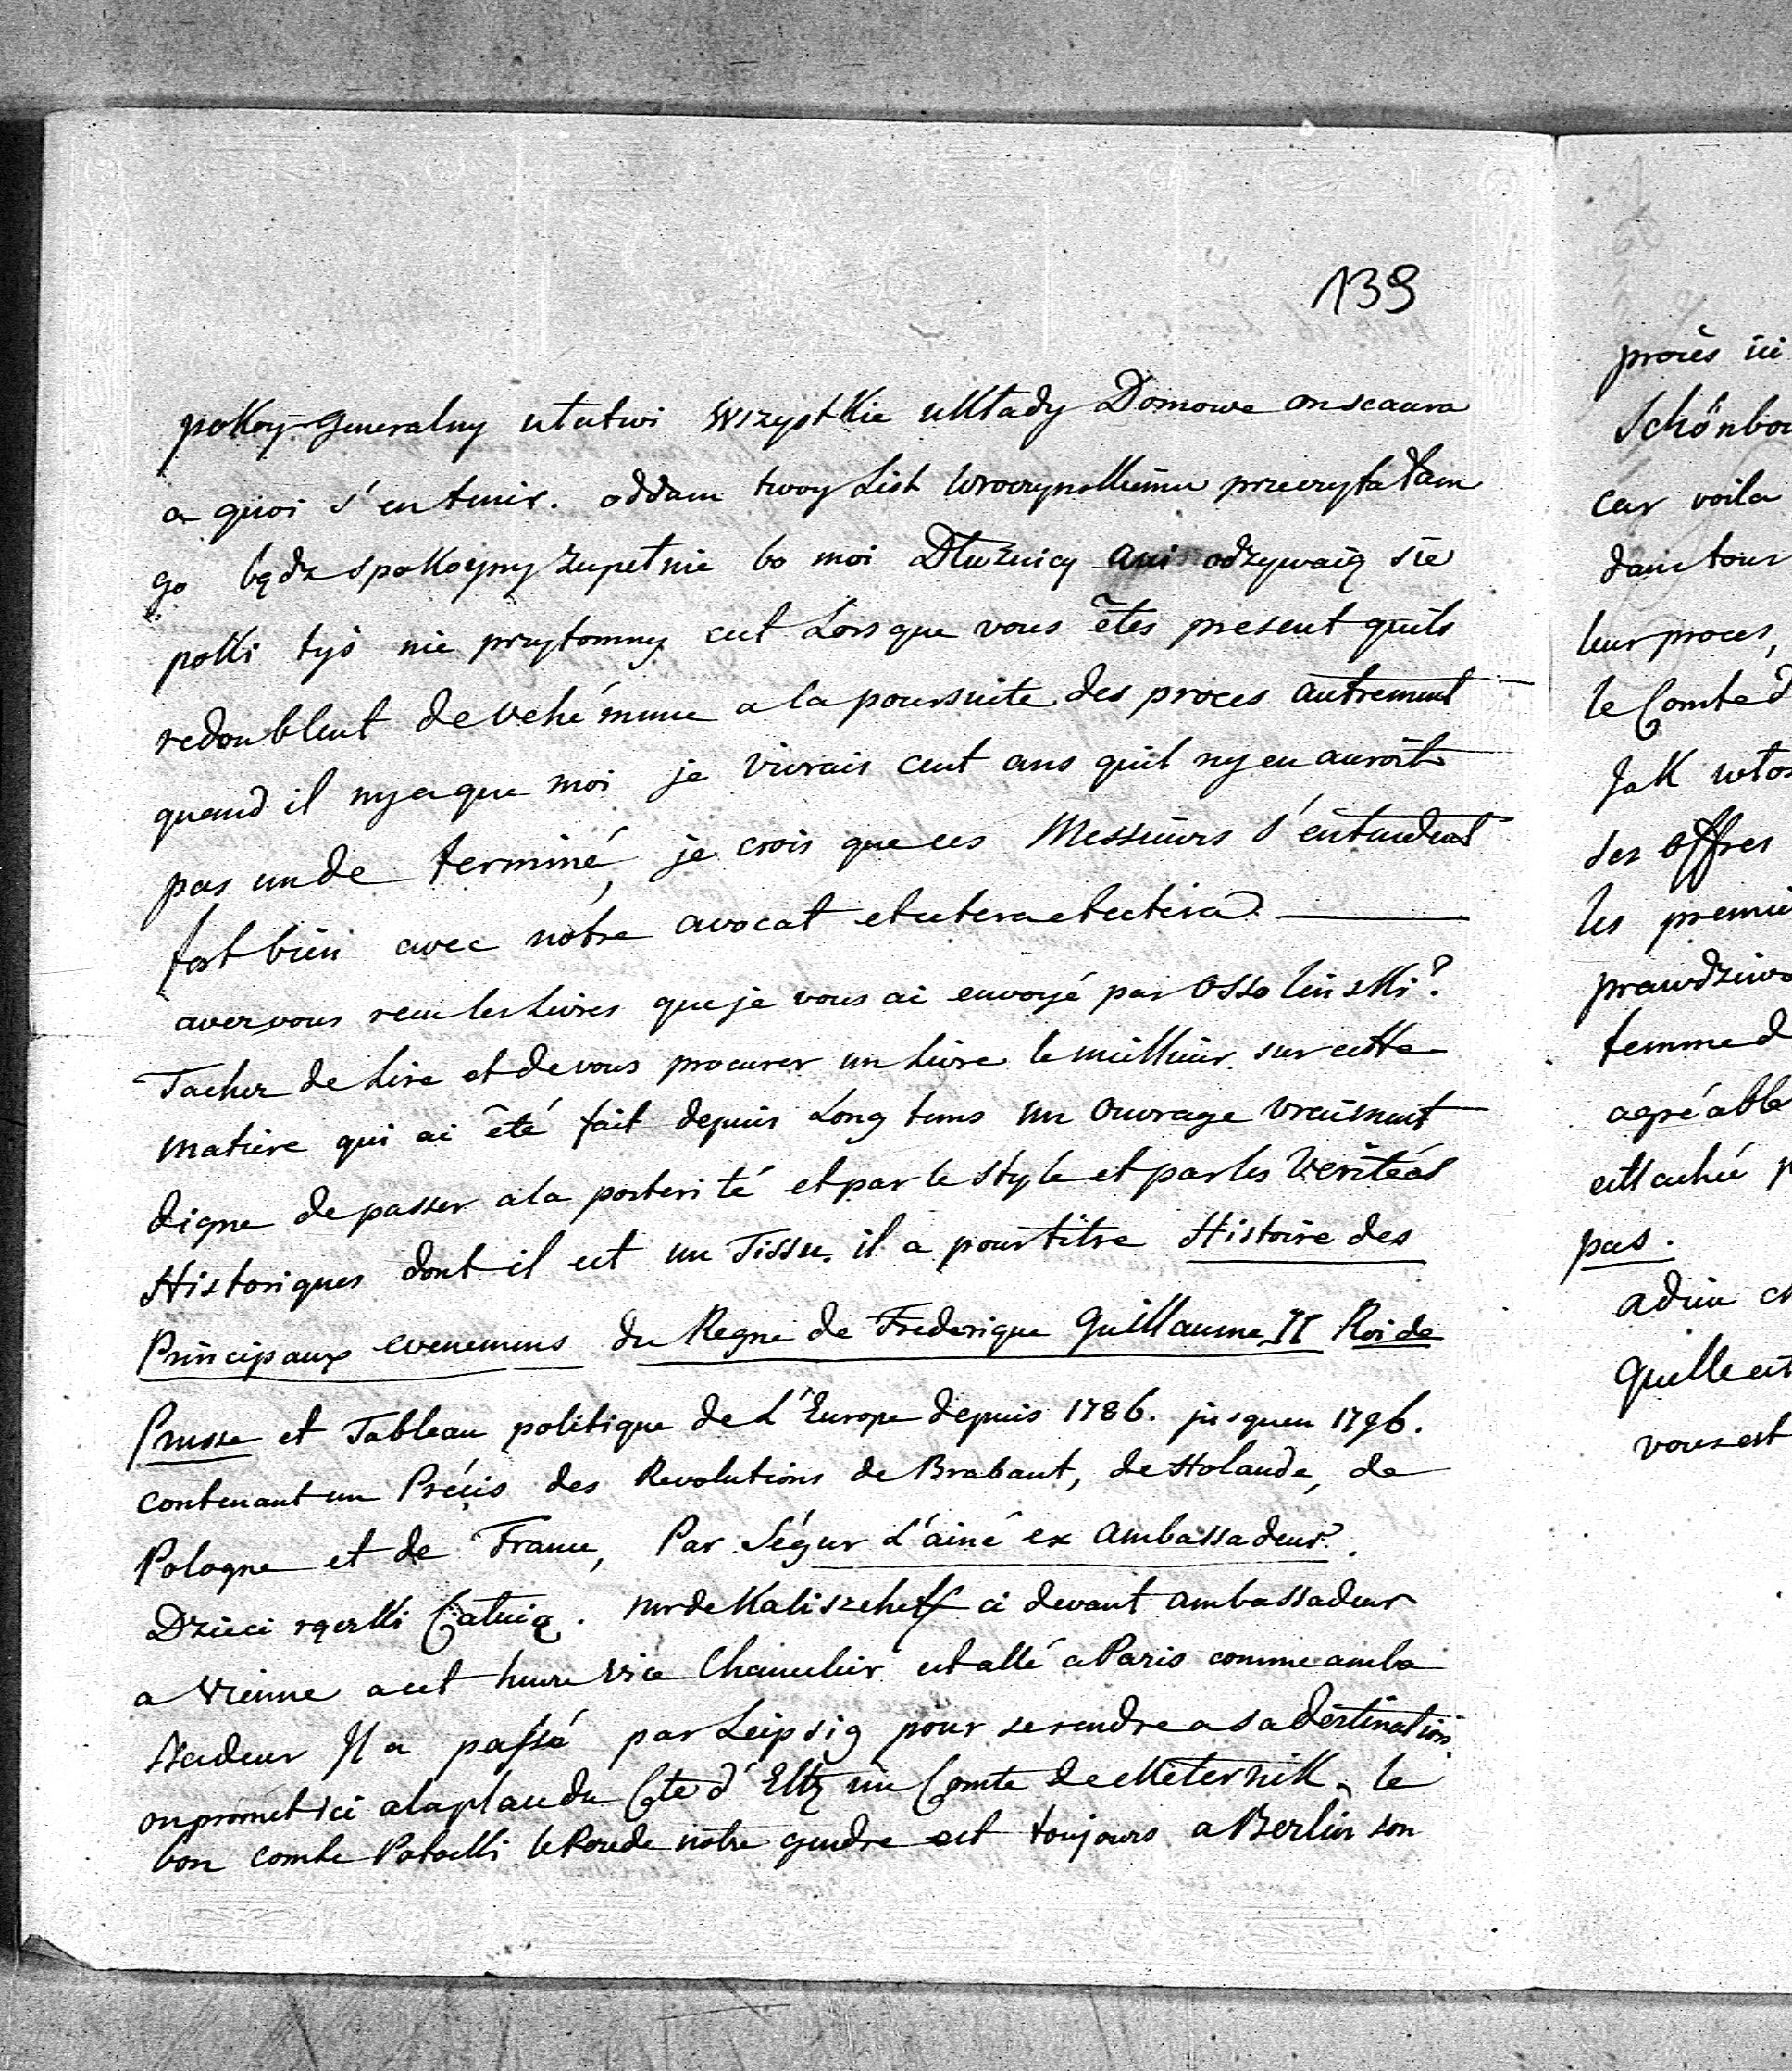 139
pokoy generalny ułatwi wszystkie układy Domowe on scaura
a quoi s'en tenir. oddam twoy List Wroczynskiemu przeczytałam
go bądz spokoyny zupełnie bo moi Dłużnicy ani odzywaią sie
poki tyś nie przytomny cest Lors que vous êtes present quils
redoublent de vehémence a la poursuite des proces autrement
quand il ny a que moi je vivrais cent ans quil ny en auroit
pas un de terminé, je crois que ces Messieurs s'entendent
fort bien avec nôtre avocat et cetera et cetera.
avez vous recu les Livres que je vous ai envoyé par Ossolinski?
Tachez de Lire et de vous procurer un Livre le meilleur sur cette
matiere qui ai été fait depuis Long tems un Ouvrage vraiment
digne de passer a la posterité et par le style et par les Veriteés
Historiques dont il est un Tissu. il a pour titre Histoire des
Principaux evenemens du Regne de Frederique Guillaume II Roi de
Prusse et Tableau politique de L'Europe depuis 1786. jusquen 1796.
contenant un Précis des Revolutions de Brabant, de Holande, de
Pologne et de France, Par Ségur L'ainé ex Ambassadeur.
Dzieci rączki Całuią. mr de Kaliszcheff ci devant ambassadeur
a Vienne a cet heure Vice Chancelier est allé a Paris comme amba
ssadeur Il a passé par Leipsig pour se rendre a sa destination.
on promet ici a la place du Cte d'Eltz un Comte de Meternik. le
bon comte Potocki le de nôtre gendre est toujours a Berlin son
procès ici
Schönbou
car voila
dans tous
leur proces,
le Comte d
Jak
des offres
les premie
prawdziw
femme d
agréable
attachée p
pas.
adieu ch
quelle est
vous est